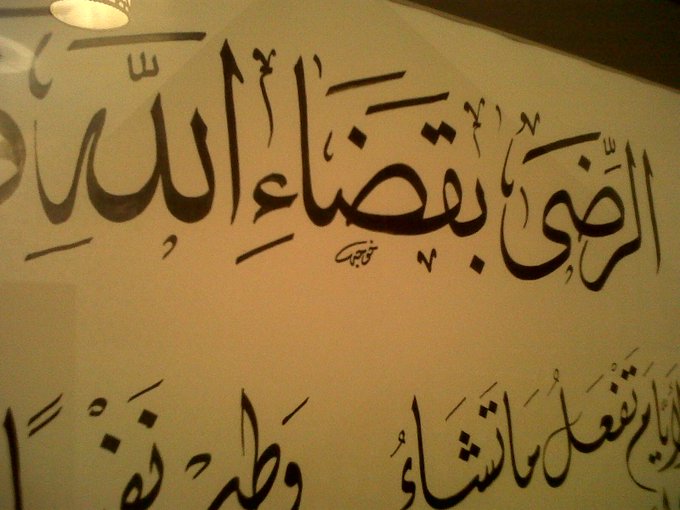 الرِّضَى بِقَضَاءِ اللَّهِ
الأَيَّامَ تَفْعَلُ مَا تَشَاءُ وَطِب نَفْساً